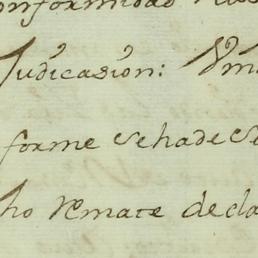 onformidad
Judicasion: Vm
forme sehade
ho Remate decla